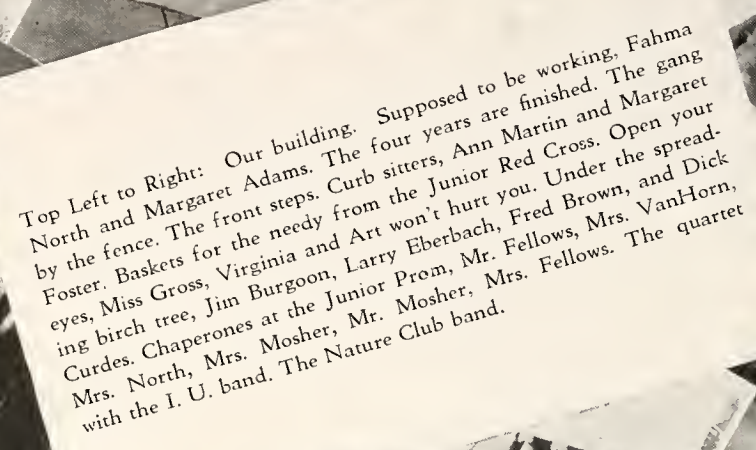 Top Left to Right: Our building. Supposed to be working, Fahma
North and Margaret Adams. The four years are finished. The gang
by the fence. The front steps. Curb sitters, Ann Martin and Margaret
Foster. Baskets for the needy from the Junior Red Cross. Open your
eyes, Miss Gross, Virginia and Art won't hurt you. Under the spread-
ing birch tree, Jim Burgoon, Larry Eberbach, Fred Brown, and Dick
Curdes. Chaperones at the Junior Prom, Mr. Fellows, Mrs. VanHorn,
Mrs. North, Mrs. Mosher, Mr. Mosher, Mrs. Fellows. The quartet
with the I. U. band. The Nature Club band.